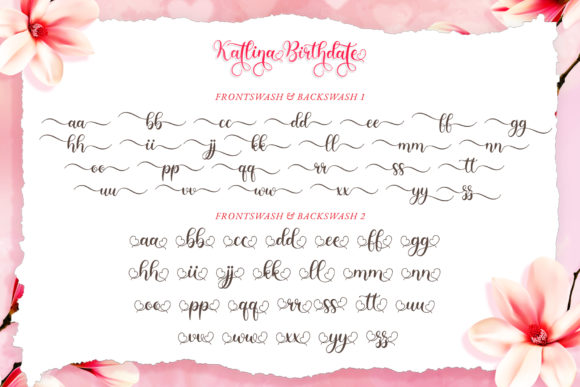 Katlina Birthdate
FRONTSWASH & BACKSWASH 1
aa bb cc dd ee ff gg
hh ii jj kk ll mm nn
oo pp qq rr ss tt
uu vv ww xx yy zz
FRONTSWASH & BACKSWASH 2
aa bb cc dd ee ff gg
hh ii jj kk ll mm nn
oo pp qq rr ss tt uu
vv ww xx yy zz